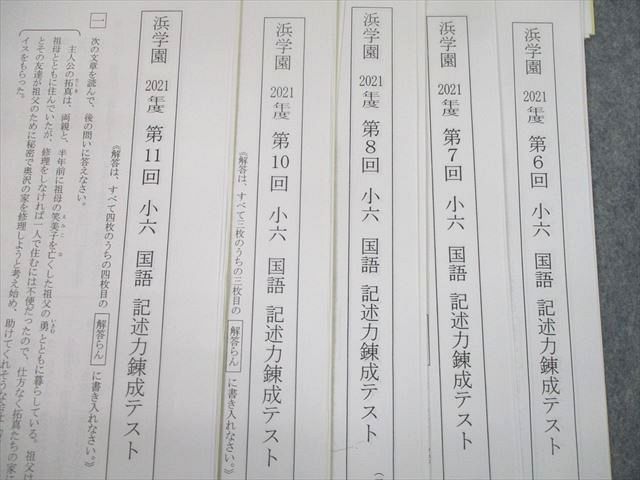 浜学園 2021年度 第6回 小六 国語 記述力錬成テスト
浜学園 2021年度 第7回 小六 国語 記述力錬成テスト
浜学園 2021年度 第8回 小六 国語 記述力錬成テスト
浜学園 2021年度 第10回 小六 国語 記述力錬成テスト
《解答は、すべて三枚のうちの三枚目の 解答らん に書き入れなさい。》
浜学園 2021年度 第11回 小六 国語 記述力錬成テスト
《解答は、すべて四枚のうちの四枚目の 解答らん に書き入れなさい。》
一 次の文章を読んで、後の問いに答えなさい。
主人公の拓真は、両親と、半年前に祖母の笑美子を亡くした祖父の勇とともに暮らしている。祖父は
祖母とともに住んでいたが、修理をしなければ一人で住むには不便だったので、仕方なく拓真たちの家に
とその友達が祖父のために秘密で奥沢の家を修理しようと考え始め、助けてくれそうな
イスをもらった。